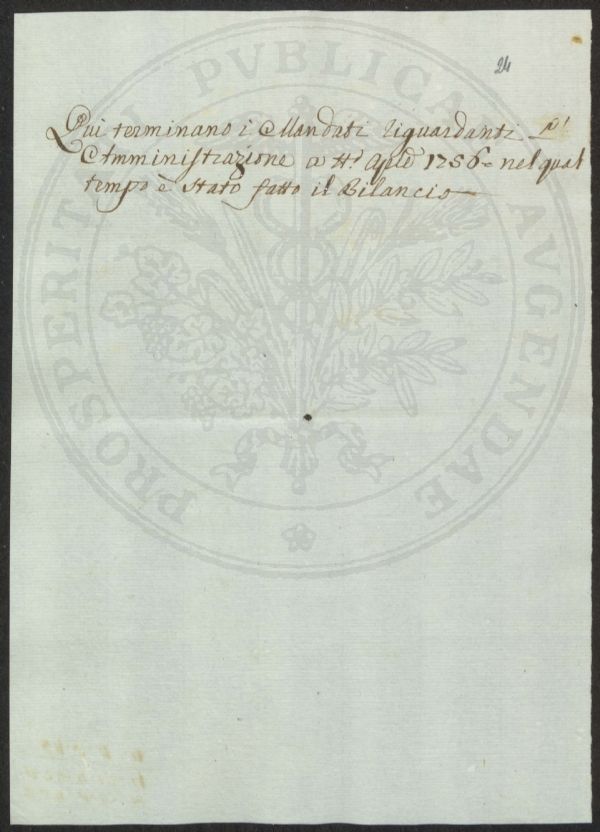 24
Qui terminano i Mandati riguardanti l'
Amministrazione a tt.º Aprile 1756 = nel qual
tempo è stato fatto il Bilancio
PROSPERITATI PVBLICAE AVGENDAE